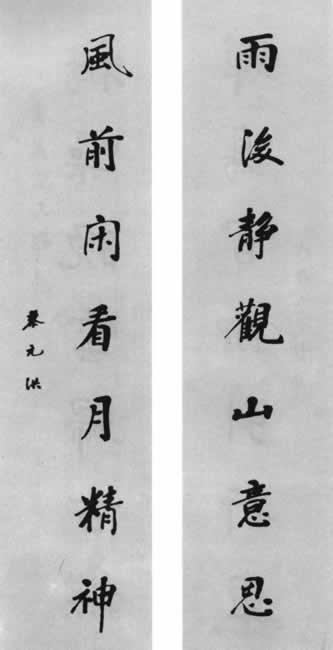 雨後静觀山意思
風前闲看月精神
黎元洪